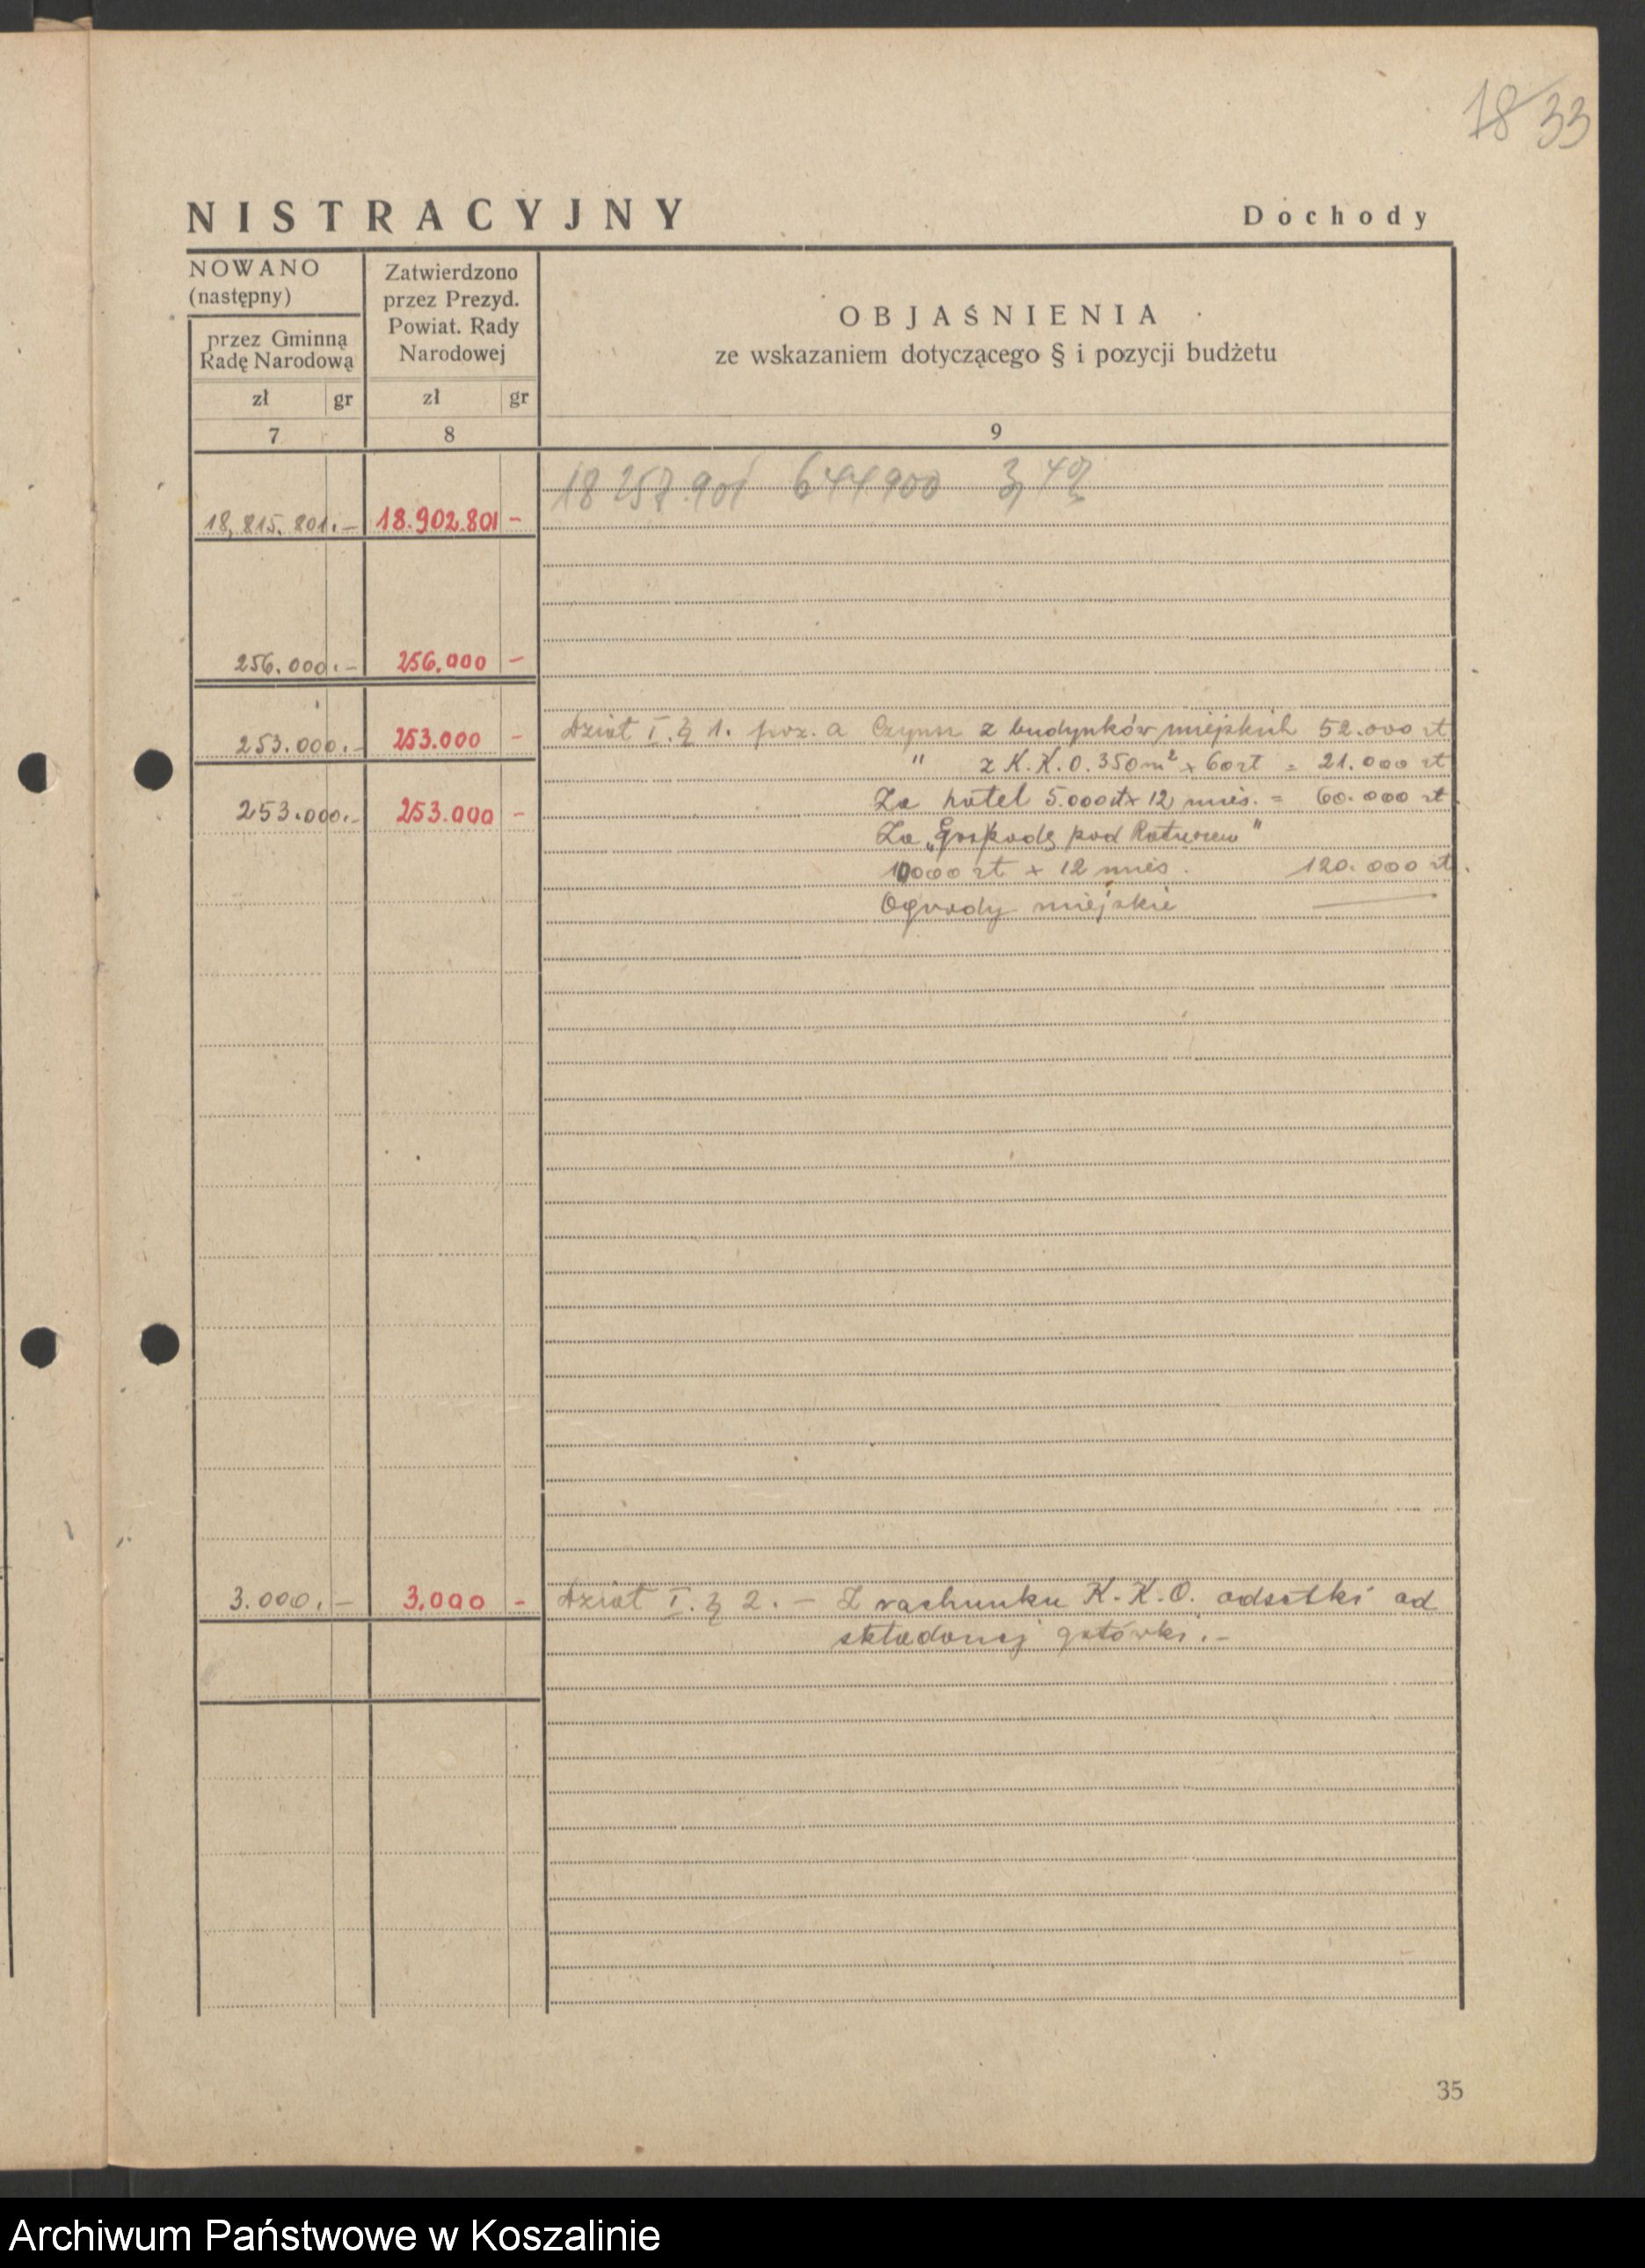 18 33
NISTRACYJNY
Dochody
NOWANO
(następny)
przez Gminną
Radę Narodową
zł gr
7
Zatwierdzono
przez Prezyd.
Powiat. Rady
Narodowej
zł gr
8
OBJAŚNIENIA
ze wskazaniem dotyczącego § i pozycji budżetu
9
18 257.901 644900 3,4%
18,815.801.- 18.902.801 -
256.000.- 256.000 -
253.000.- 253.000 - Dział I. § 1. poz. a Czynsz z budynków miejskich 52.000 zł
" z K.K.O. 350 m² x 60 zł = 21.000 zł
253.000.- 253.000 - Za hotel 5.000 zł x 12 mies. = 60.000 zł
Za „Gospodę pod Ratuszem"
10000 zł x 12 mies. 120.000 zł.
Ogrody miejskie —
3.000.- 3.000 - Dział I. § 2. — Z rachunku K.K.O. odsetki od
składanej gotówki.-
35
Archiwum Państwowe w Koszalinie